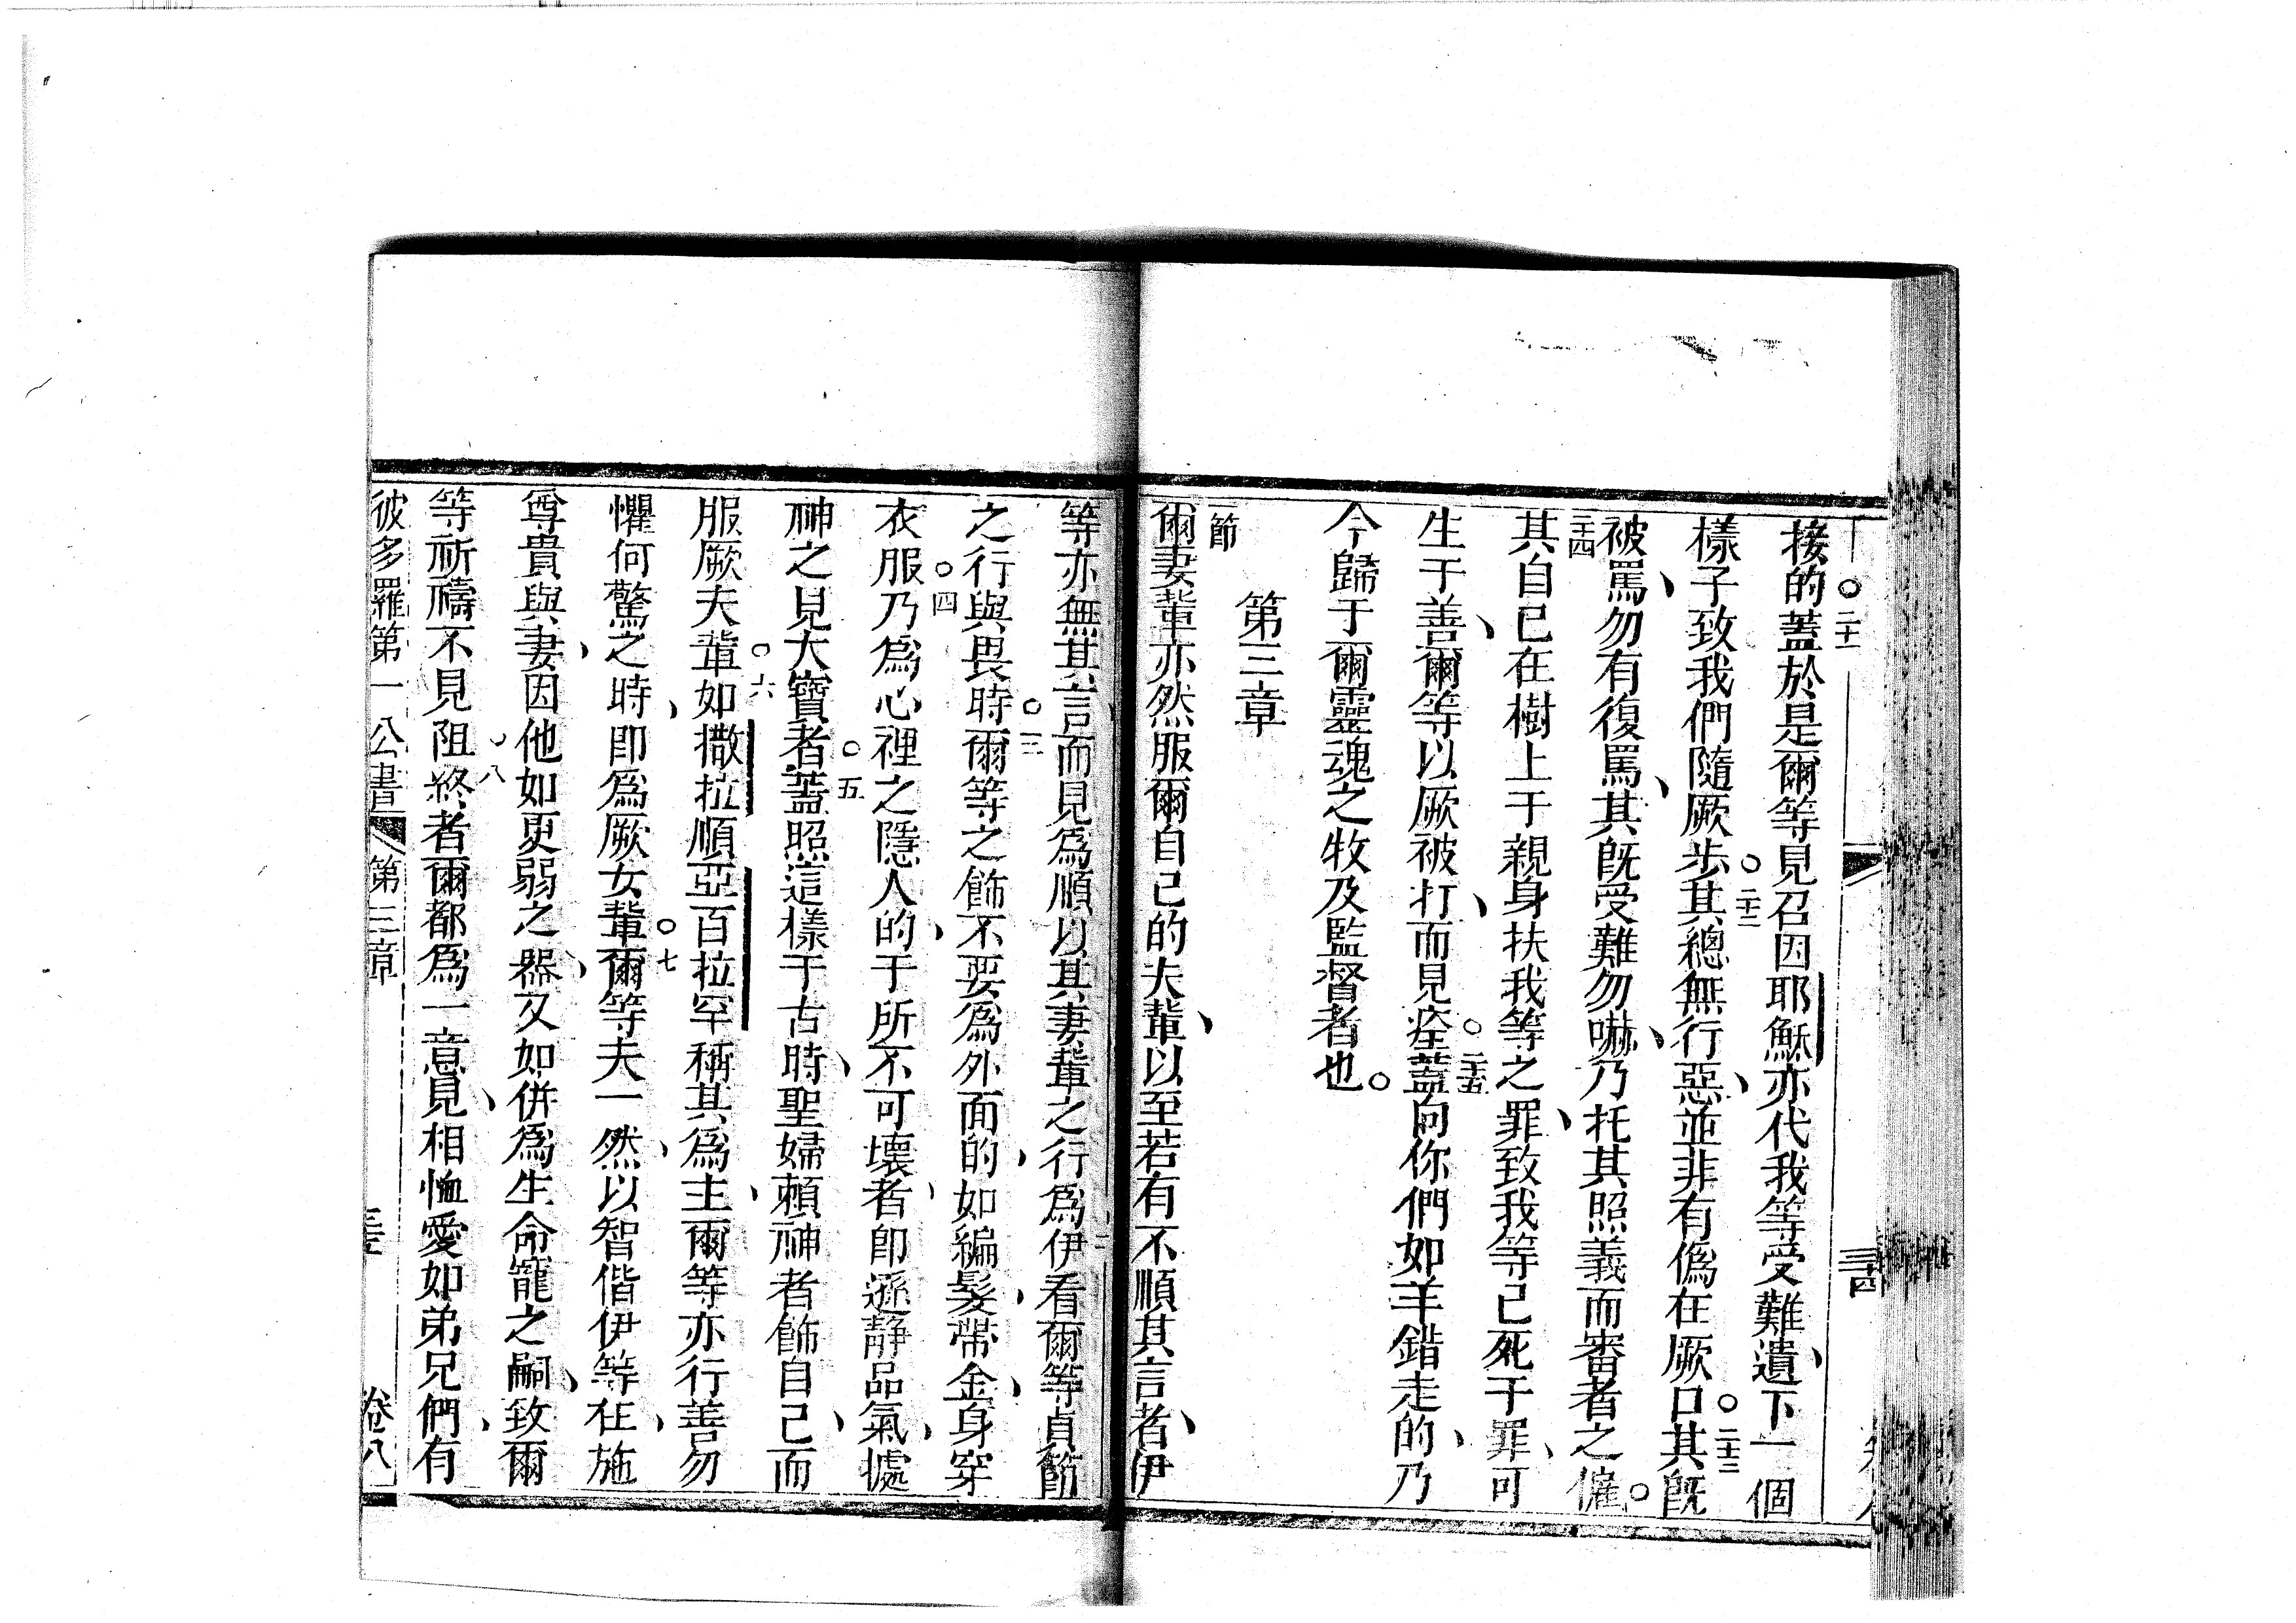 接的蓋於是爾等見召因耶穌亦代我等受難、遺下一個
樣子致我們隨厥步其總無行惡、並非有僞在厥口其旣
被罵、勿有復罵、其旣受難勿嚇、乃托其照義而審者之㒕。
其自己在樹上于親身扶我等之罪、致我等已死于罪、可
生于善、爾等以厥被打、而見痊蓋向你們如羊錯走的、乃
今歸于爾靈魂之牧及監督者也。
第三章
爾妻輩亦然服爾自己的夫輩、以至若有不順其言者、伊
等亦無其言而見爲順以其妻輩之行爲伊看爾等貞節
之行與畏時爾等之飾不要爲外面的、如編髮、帶金、身穿
衣服乃爲心裡之隱人的、于所不可壞者、即遜靜品氣、處
神之見大寶者蓋照這樣于古時、聖婦賴神者飾自己、而
服厥夫輩如撒拉順亞百拉罕稱其爲主、爾等亦行善勿
懼何驚之時、即爲厥女輩爾等夫一然、以智偕伊等在、施
尊貴與妻、因他如更弱之器、又如併爲生命寵之嗣、致爾
等祈禱不見阻終者爾都爲一意見、相恤愛如弟兄們、有
彼多羅第一公書 第三章 卷八